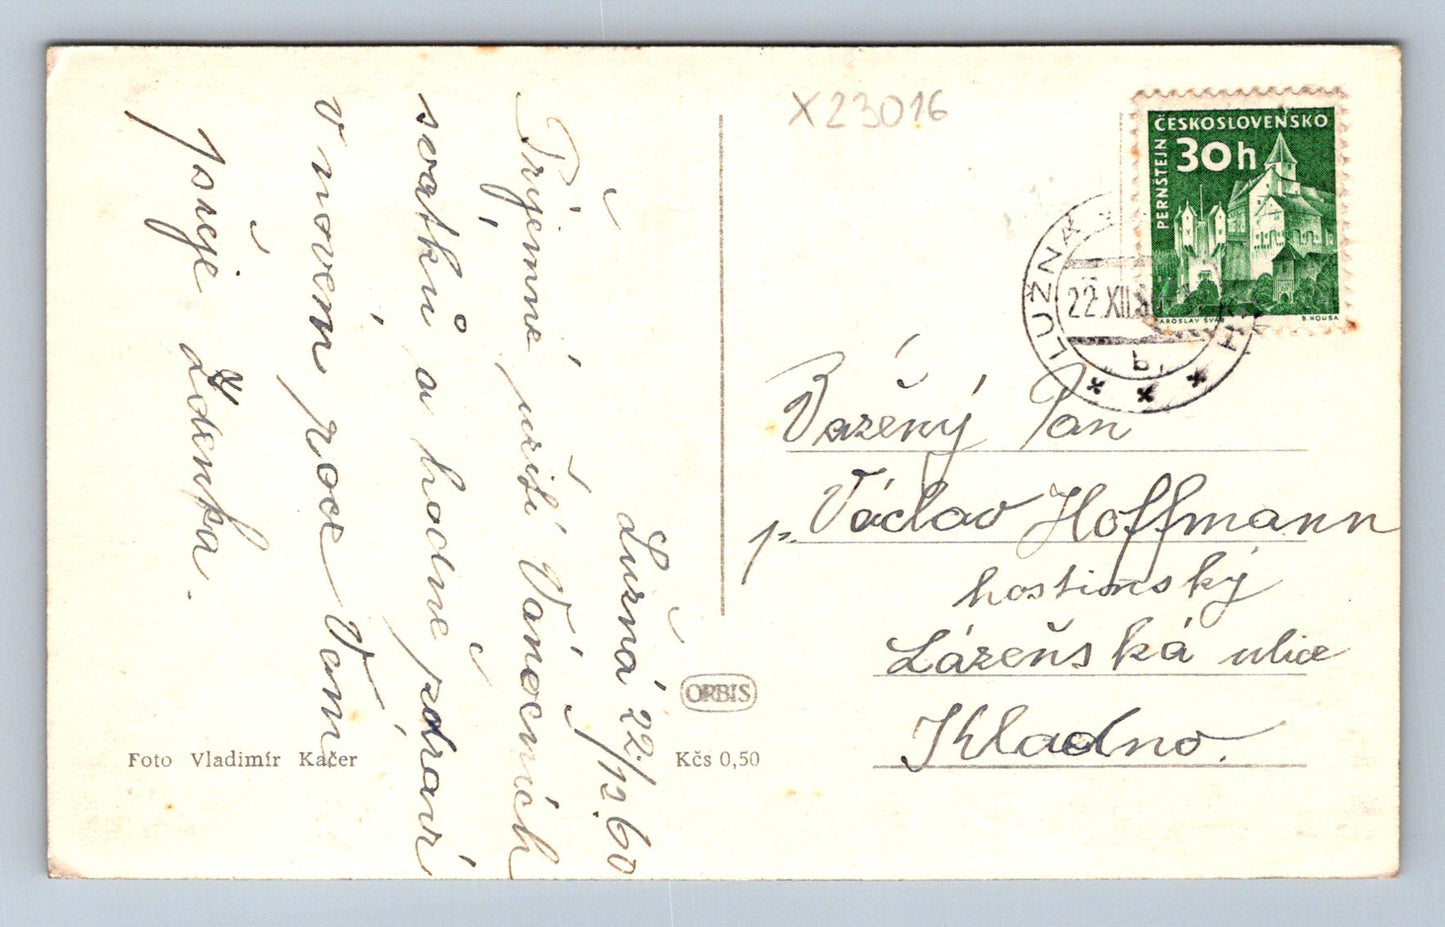 X23016
ČESKOSLOVENSKO
30h
PERNŠTEJN
JAROSLAV ŠVÁB
B. HOUSA
LUŽNÁ
22.XII.
b
Lužná 22./12.60
Příjemné užití Vánočních
svátků a hodně zdraví
v novém roce Vám
přeje Zdenka.
Vážený Pan
p. Václav Hoffmann
hostinský
Lázeňská ulice
Kladno.
ORBIS
Foto Vladimír Kačer
Kčs 0,50